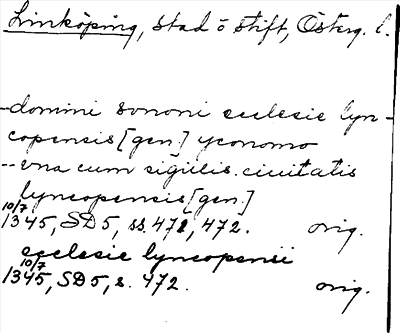 Linköping, stad o stift, Österg. l.
-domini sunoni ecclesie lyn-
copensis [gen.] yconomo
--vna cum sigillis ciuitatis
lyncopensis [gen.]
10/7
1345, SD5, ss. 471, 472. orig.
ecclesie lyncopensi
10/7
1345, SD5, s. 472. orig.